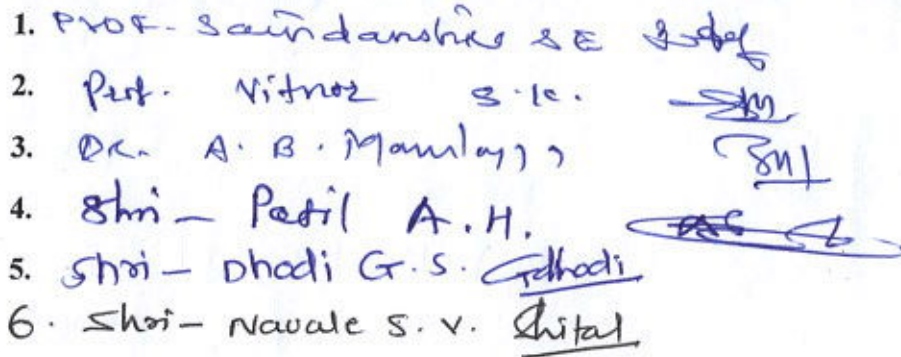 1. Prof. Saindanshiv S E
2. Prof. Vitnor S.K.
3. Dr. A. B.
4. Shri - Patil A.H.
5. Shri - Dhodi G.S. GDhodi
6. Shri - Navale S. V. Shital